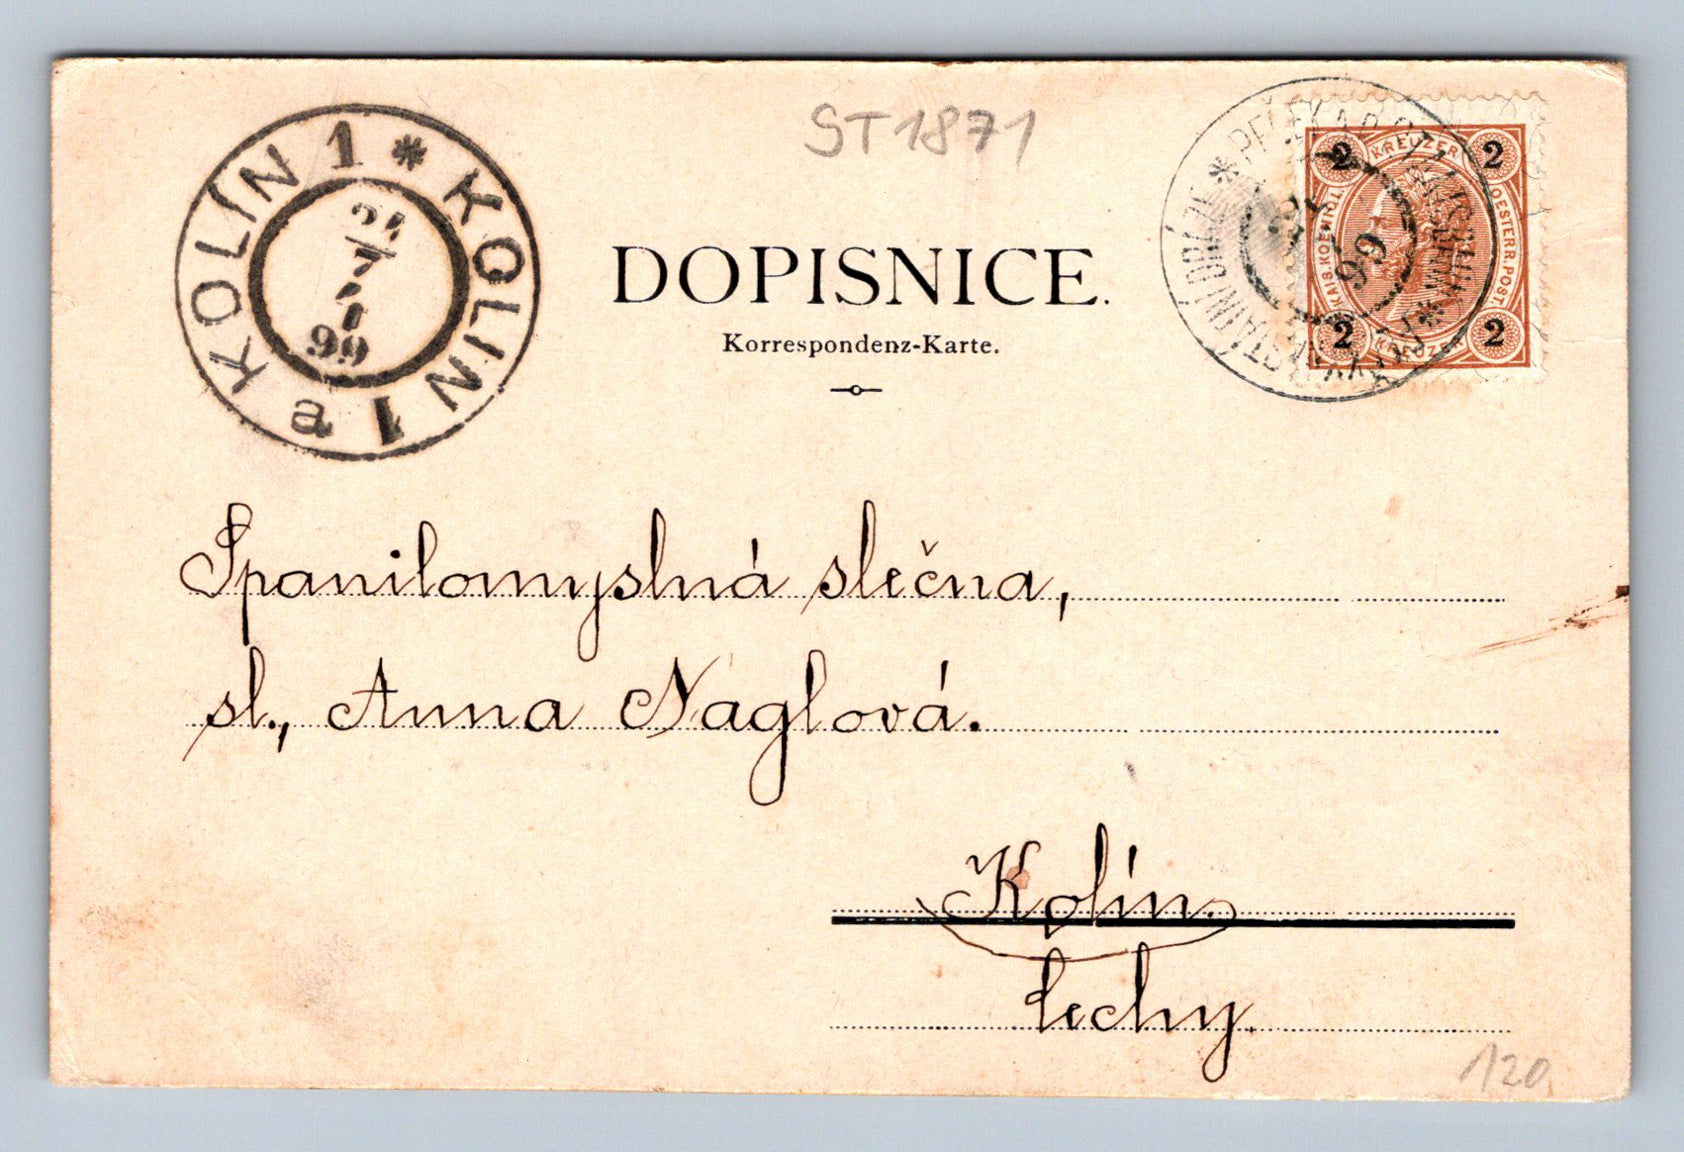 ST1871
KOLÍN 1 * KOLIN 1 a
24
7
1
99
DOPISNICE.
Korrespondenz-Karte.
2 KREUZER 2
KAIS. KOENIGL. OESTERR. POST.
2 KREUZER 2
99
Spanilomyslná slečna,
sl., Anna Naglová.
Kolín.
Čechy.
120